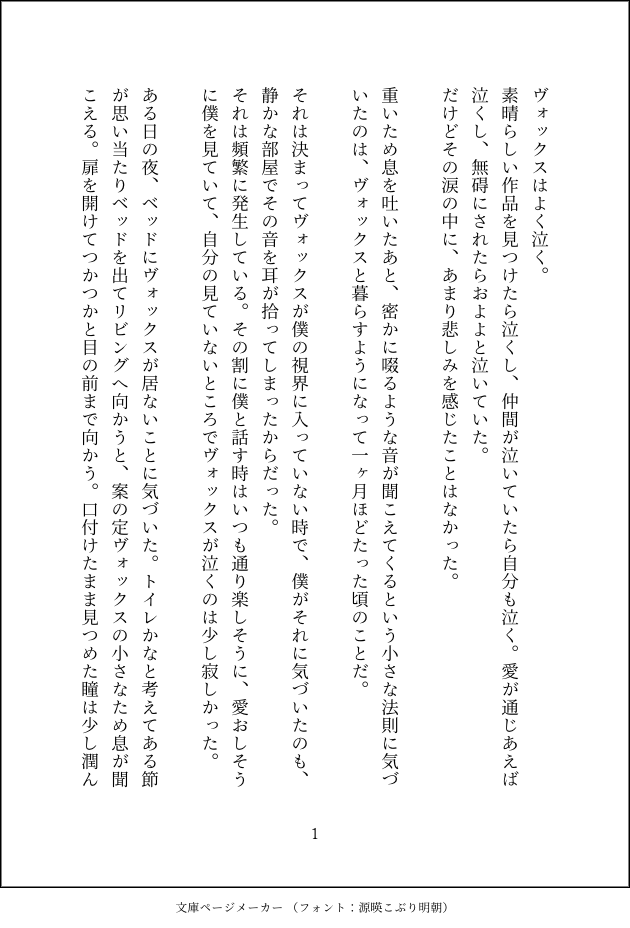 ヴォックスはよく泣く。
素晴らしい作品を見つけたら泣くし、仲間が泣いていたら自分も泣く。愛が通じあえば
泣くし、無碍にされたらおよよと泣いていた。
だけどその涙の中に、あまり悲しみを感じたことはなかった。
重いため息を吐いたあと、密かに啜るような音が聞こえてくるという小さな法則に気づ
いたのは、ヴォックスと暮らすようになって一ヶ月ほどたった頃のことだ。
それは決まってヴォックスが僕の視界に入っていない時で、僕がそれに気づいたのも、
静かな部屋でその音を耳が拾ってしまったからだった。
それは頻繁に発生している。その割に僕と話す時はいつも通り楽しそうに、愛おしそう
に僕を見ていて、自分の見ていないところでヴォックスが泣くのは少し寂しかった。
ある日の夜、ベッドにヴォックスが居ないことに気づいた。トイレかなと考えてある節
が思い当たりベッドを出てリビングへ向かうと、案の定ヴォックスの小さなため息が聞
こえる。扉を開けてつかつかと目の前まで向かう。口付けたまま見つめた瞳は少し潤ん
1
文庫ページメーカー（フォント：源暎こぶり明朝）